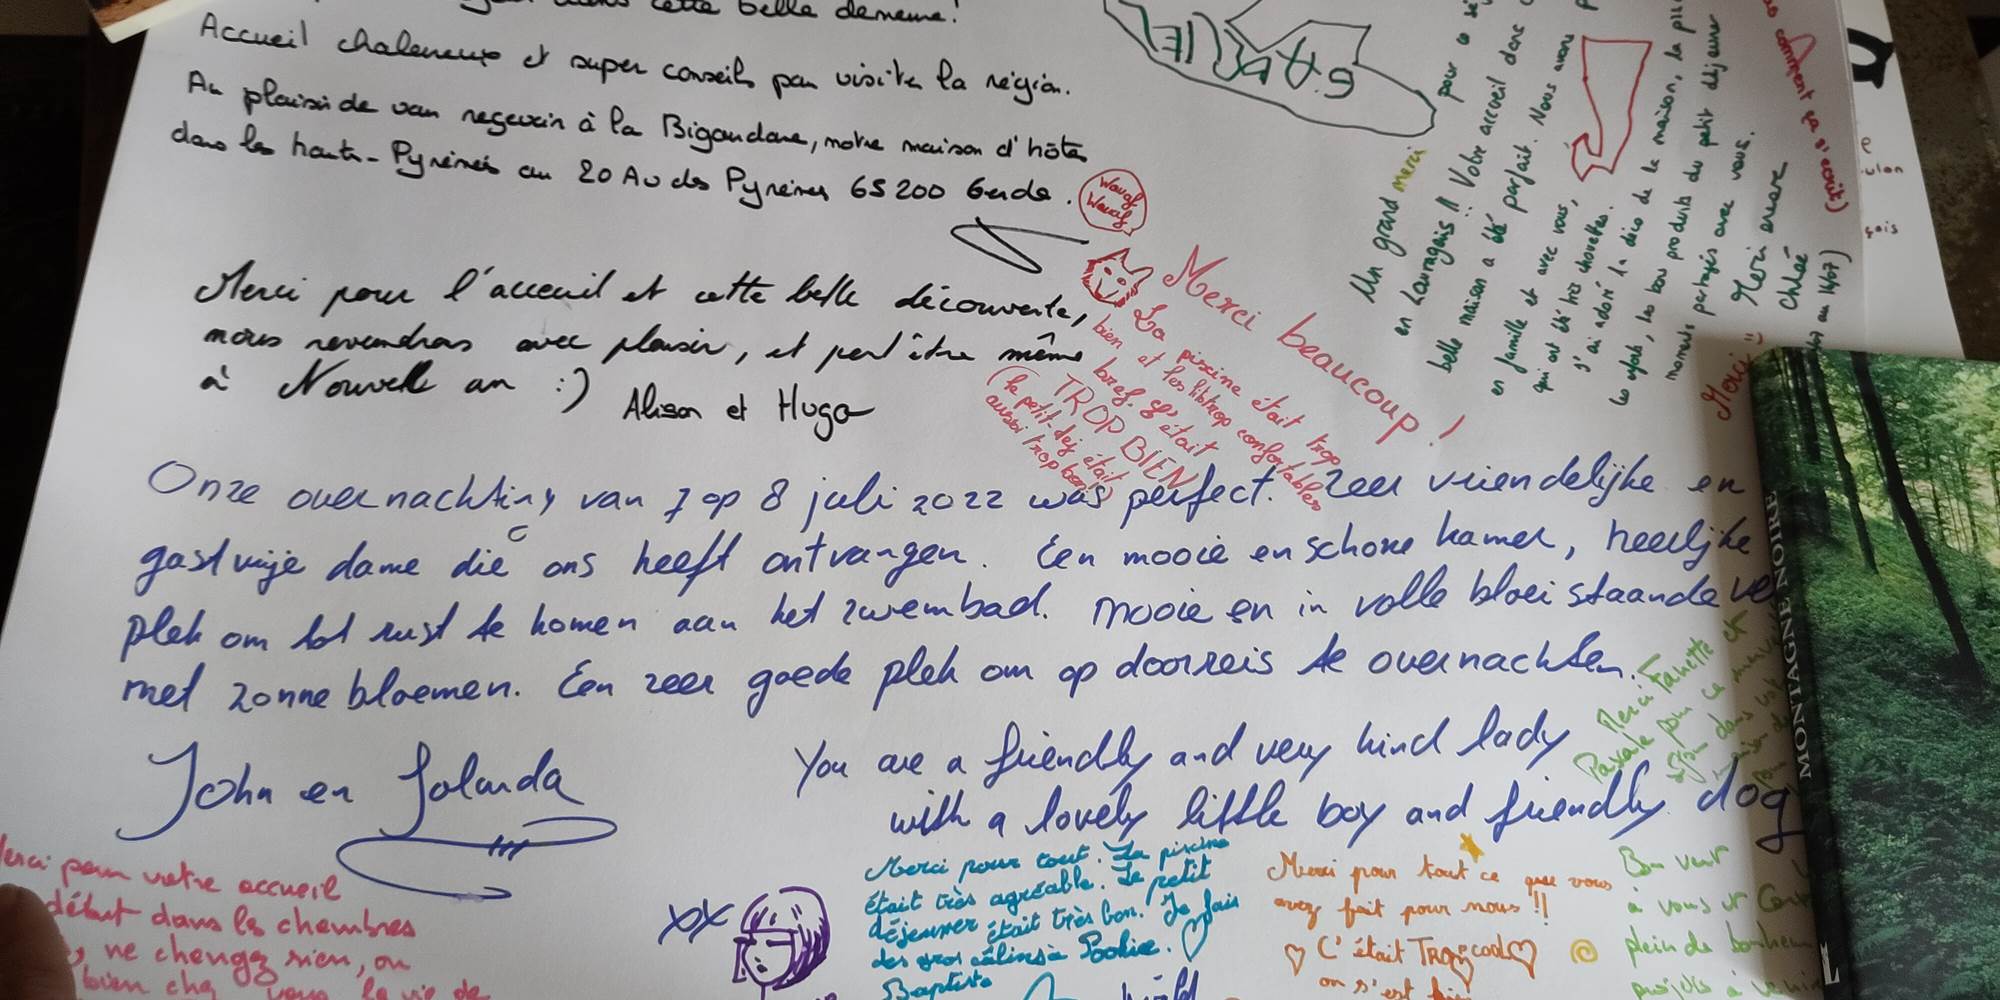 cette belle demeure!
Accueil chaleureux et super conseils pour visiter la région.
Au plaisir de vous recevoir à la Bigourdane, notre maison d'hôtes
dans les hautes-Pyrénées au 20 Av des Pyrénées 65200 Gerde.
Wouaf
Wouaf
Merci pour l'acceuil et cette belle découverte,
nous reviendrons avec plaisir, et peut être même
à Nouvel an :)
Alison et Hugo
Merci beaucoup!
La piscine était trop
bien et les lits trop confortables
bref, s'était
TROP BIEN
(le petit-dej était
aussi trop bon)
GABRIEL
Un grand merci pour ce
en Lauragais !! Votre accueil dans
belle maison a été parfait. Nous avons
en famille et avec vous,
qui ont été très chouettes.
J'ai adoré la déco de la maison, la
les bons produits du petit déjeuner
moments partagés avec vous.
Merci encore
Chloé
au 14/07)
comment ça s'écrit)
Merci
Onze overnachting van 7 op 8 juli 2022 was perfect. Zeer vriendelijke en
gastvrije dame die ons heeft ontvangen. Een mooie en schone kamer, heerlijke
plek om tot rust te komen aan het zwembad. Mooie en in volle bloei staande ve
met zonnebloemen. Een zeer goede plek om op doorreis te overnachten.
John en Jolanda
You are a friendly and very kind lady
with a lovely little boy and friendly dog
Merci Fanette et
Pascale pour ce
séjour dans
MONTAGNE NOIRE
Merci pour votre accueil
détent dans les chambres
ne changez rien, on
bien chez vous la vie de
XX
Merci pour tout. La piscine
était très agréable. Le petit
déjeuner était très bon. Je fais
des gros câlins à
Baptiste
Merci pour tout ce que vous
avez fait pour nous !!
C'était Trop cool
on s'est
Bon vent
à vous et
plein de bonheur
projets à venir